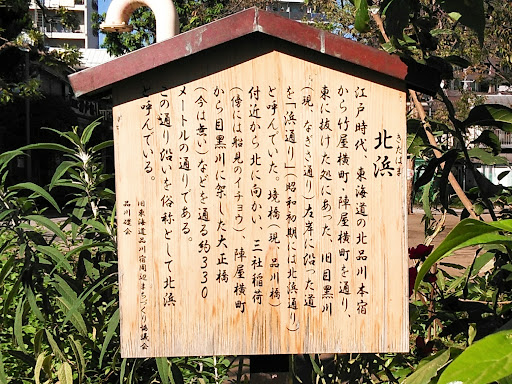 北浜
きたはま
江戸時代、東海道の北品川本宿
から竹屋横町・陣屋横町を通り、
東に抜けた処にあった、旧目黒川
(現、なぎさ通り)左岸に沿った道
を「浜通り」(昭和初期には北浜通り)
と呼んでいた。境橋(現、品川橋)
付近から北に向かい、三社稲荷
(傍には船見のイチョウ)、陣屋横町
から目黒川に架した大正橋
(今は無い)などを通る約330
メートルの通りである。
この通り沿いを俗称として北浜
と呼んでいる。
旧東海道品川宿周辺まちづくり協議会
品川宿会